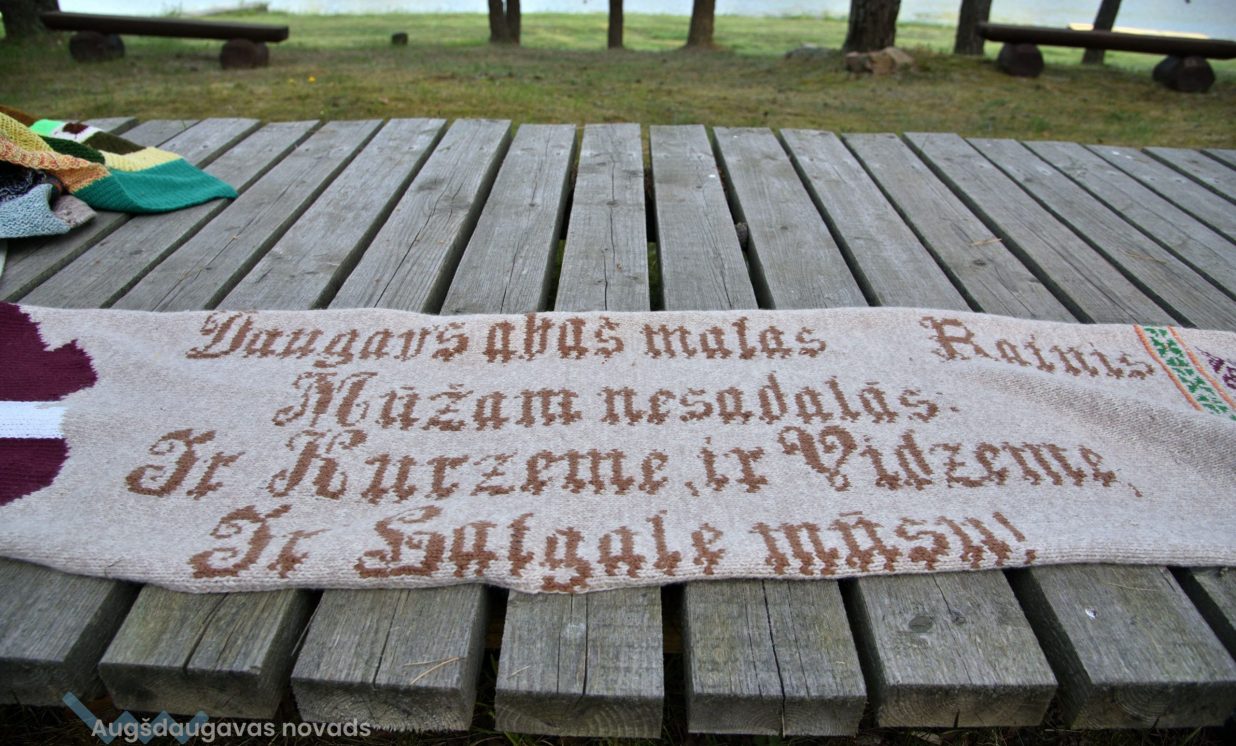 Daugavs abas malas Rainis
Mūžam nesadalās.
Ir Kurzeme, ir Vidzeme,
Ir Latgale mūsu!
Augšdaugavas novads